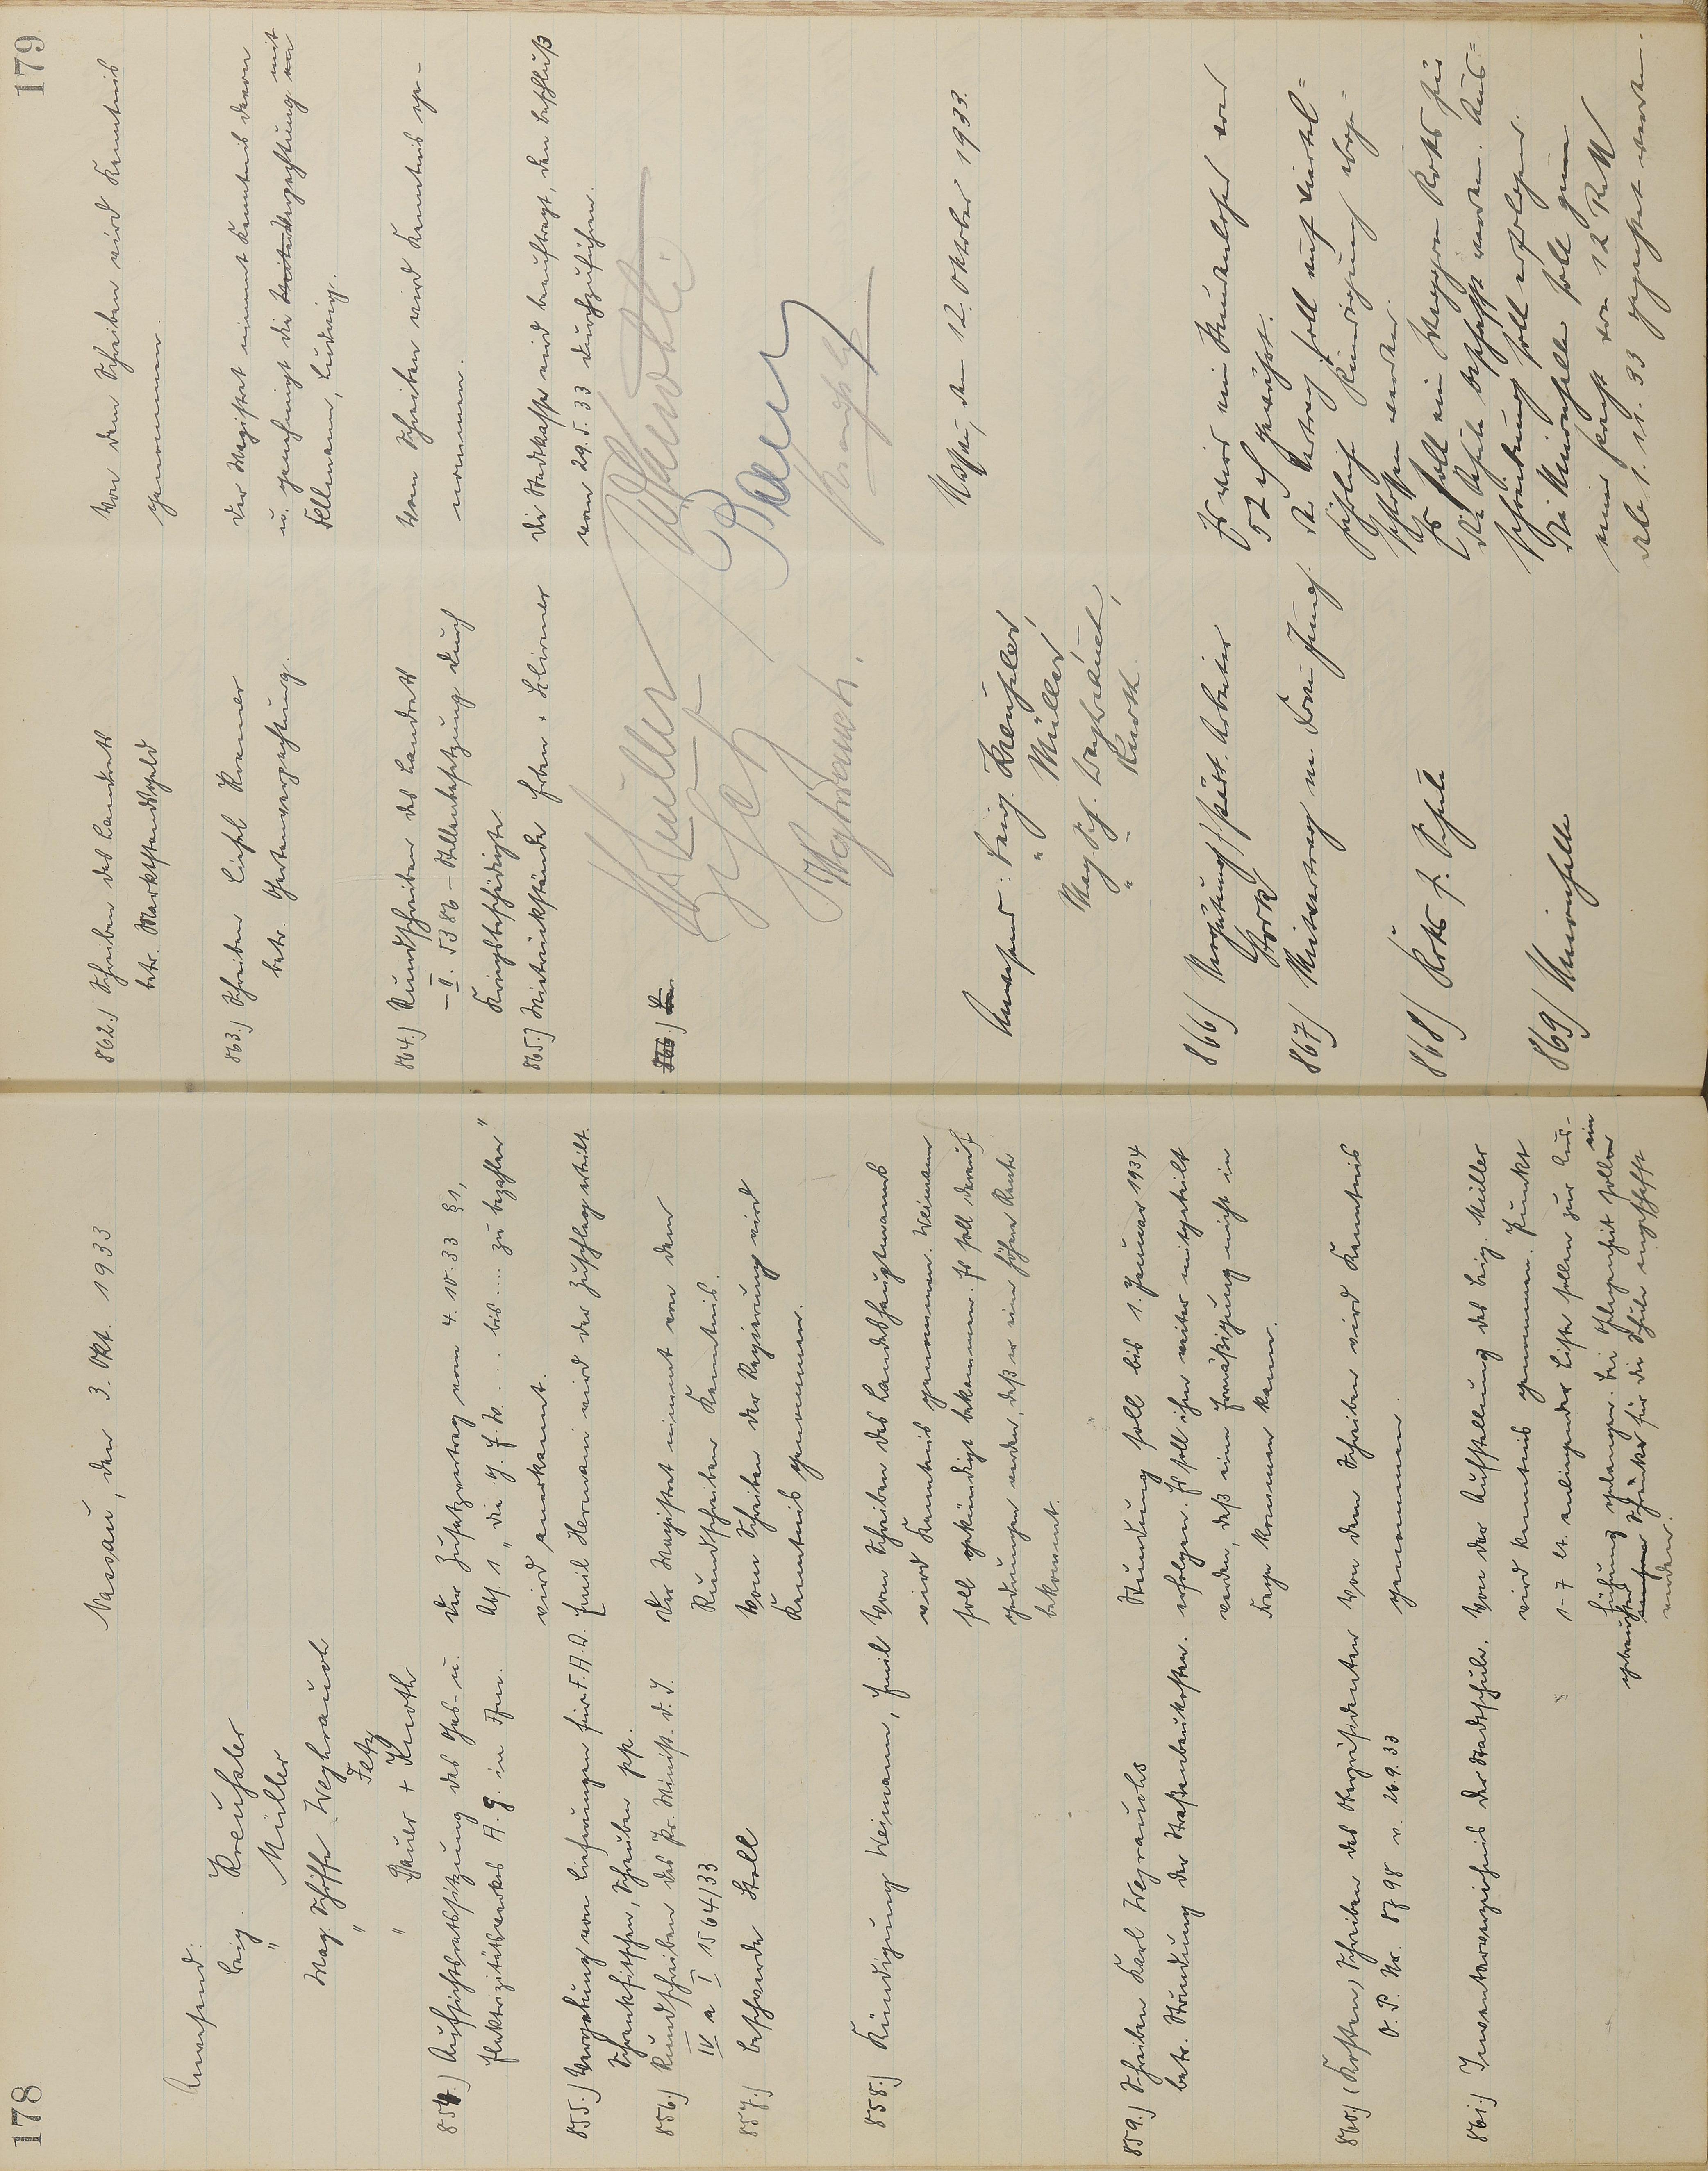 178
Nassau, den 3. Okt. 1933
Anwesend:
Beig. Kreuseler
" Müller
Mag. Schöffe Weyhrauch
" Fetz
" Bauer + Kurth
854.) Aufsichtsratssitzung des Gas- u.
Elektrizitätswerkes A.G. in Ems.
Der Zusatzvertrag vom 4.10.33 §1,
Abs 1 „die G.f.W. .... bis .... zu bezahlen"
wird anerkannt.
855.) Vergebung von Liefrungen für F.A.D.
Schrankfitschen, Schrauben pp.
Emil Hermann wird der Zuschlag erteilt.
856.) Rundschreiben des Pr. Minist. d. I.
IV a I 1564/33
Der Magistrat nimmt von dem
Rundschreiben Kenntnis.
857.) Beschwerde Stoll
Vom Schreiben der Regierung wird
Kenntnis genommen.
858.) Kündigung Weimann, Emil
Vom Schreiben des Landeshauptmanns
wird Kenntnis genommen. Weimann
soll gekündigt bekommen. Es soll darauf
gedrungen werden, daß er eine höhere Rente
bekommt.
859.) Schreiben Karl Weyrauchs
betr. Stundung der Straßenbaukosten.
Stundung soll bis 1. Januar 1934
erfolgen. Es soll ihm weiter mitgeteilt
werden, daß eine Ermäßigung nicht in
Frage kommen kann.
860.) (Kosten) Schreiben des Oberpräsidenten
O.P. Nr. 8798 v. 26.9.33
Von dem Schreiben wird Kenntnis
genommen.
861.) Inventarverzeichnis der Stadtschule.
Von der Aufstellung des Beig. Müller
wird Kenntnis genommen. Punkt
1-7 lt. anliegender Liste sollen zur Aus-
führung gelangen. Bei Gelegenheit soll ein
gebrauchter Schrank für die Schule angeschafft
werden.
179
862.) Schreiben des Landrats
betr. Marktstandsgeld
Von dem Schreiben wird Kenntnis
genommen.
863.) Schreiben Liesel Kramer
betr. Gartenverpachtung.
Der Magistrat nimmt Kenntnis davon
u. genehmigt die Weiterverpachtung mit
Fellmann, Ludwig.
864.) Rundschreiben des Landrats
– II. 5386 – Stellenbesetzung durch
Kriegsbeschädigte.
Vom Schreiben wird Kenntnis ge-
nommen.
865.) Mietrückstände Erben Schirmer
Die Stadtkasse wird beauftragt, den Beschluß
vom 29.5.33 durchzuführen.
866.)
Müller
Fetz
Weyhrauch.
Bauer
Kreuseler
Nassau, den 12. Oktober 1933.
Anwesend: Beig. Kreuseler,
" Müller,
Mag. Sch. Weyhrauch,
" " Kurth
866) Vergütung f. städt. Arbeiter
Stork
Es wird ein Stundenlohn von
52 Pf gewährt.
867) Mietvertrag m. Frau Jung.
Der Vertrag soll auf viertel=
jährlich Kündigung abge=
schlossen werden.
868) Koks f. Schule
Es soll ein Waggon Koks für
die Schule beschafft werden. Aus=
schreibung soll erfolgen.
869)
soll gegen
eine Pacht von 12 RM
ab 1.11.33 gepachtet werden.